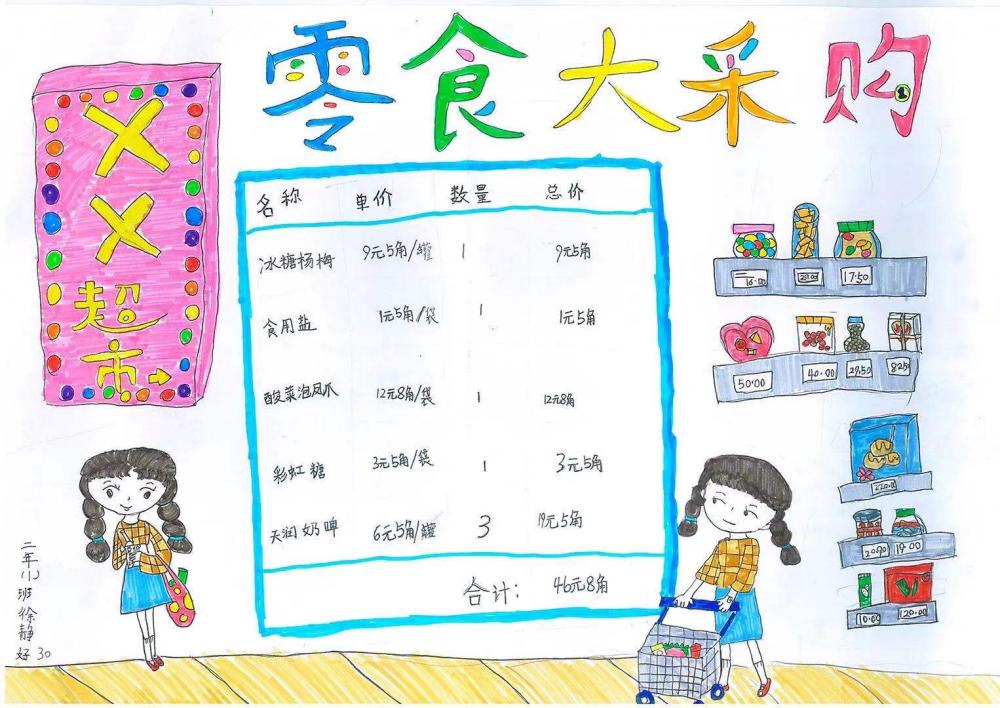 零食大采购
XX超市
名称 单价 数量 总价
冰糖杨梅 9元5角/罐 1 9元5角
食用盐 1元5角/袋 1 1元5角
酸菜泡凤爪 12元8角/袋 1 12元8角
彩虹糖 3元5角/袋 1 3元5角
天润奶啤 6元5角/罐 3 19元5角
合计: 46元8角
16.00 17.50
50.00 40.00 29.50
20.90 19.00
10.00 120.00
二年(1)班徐静好 30